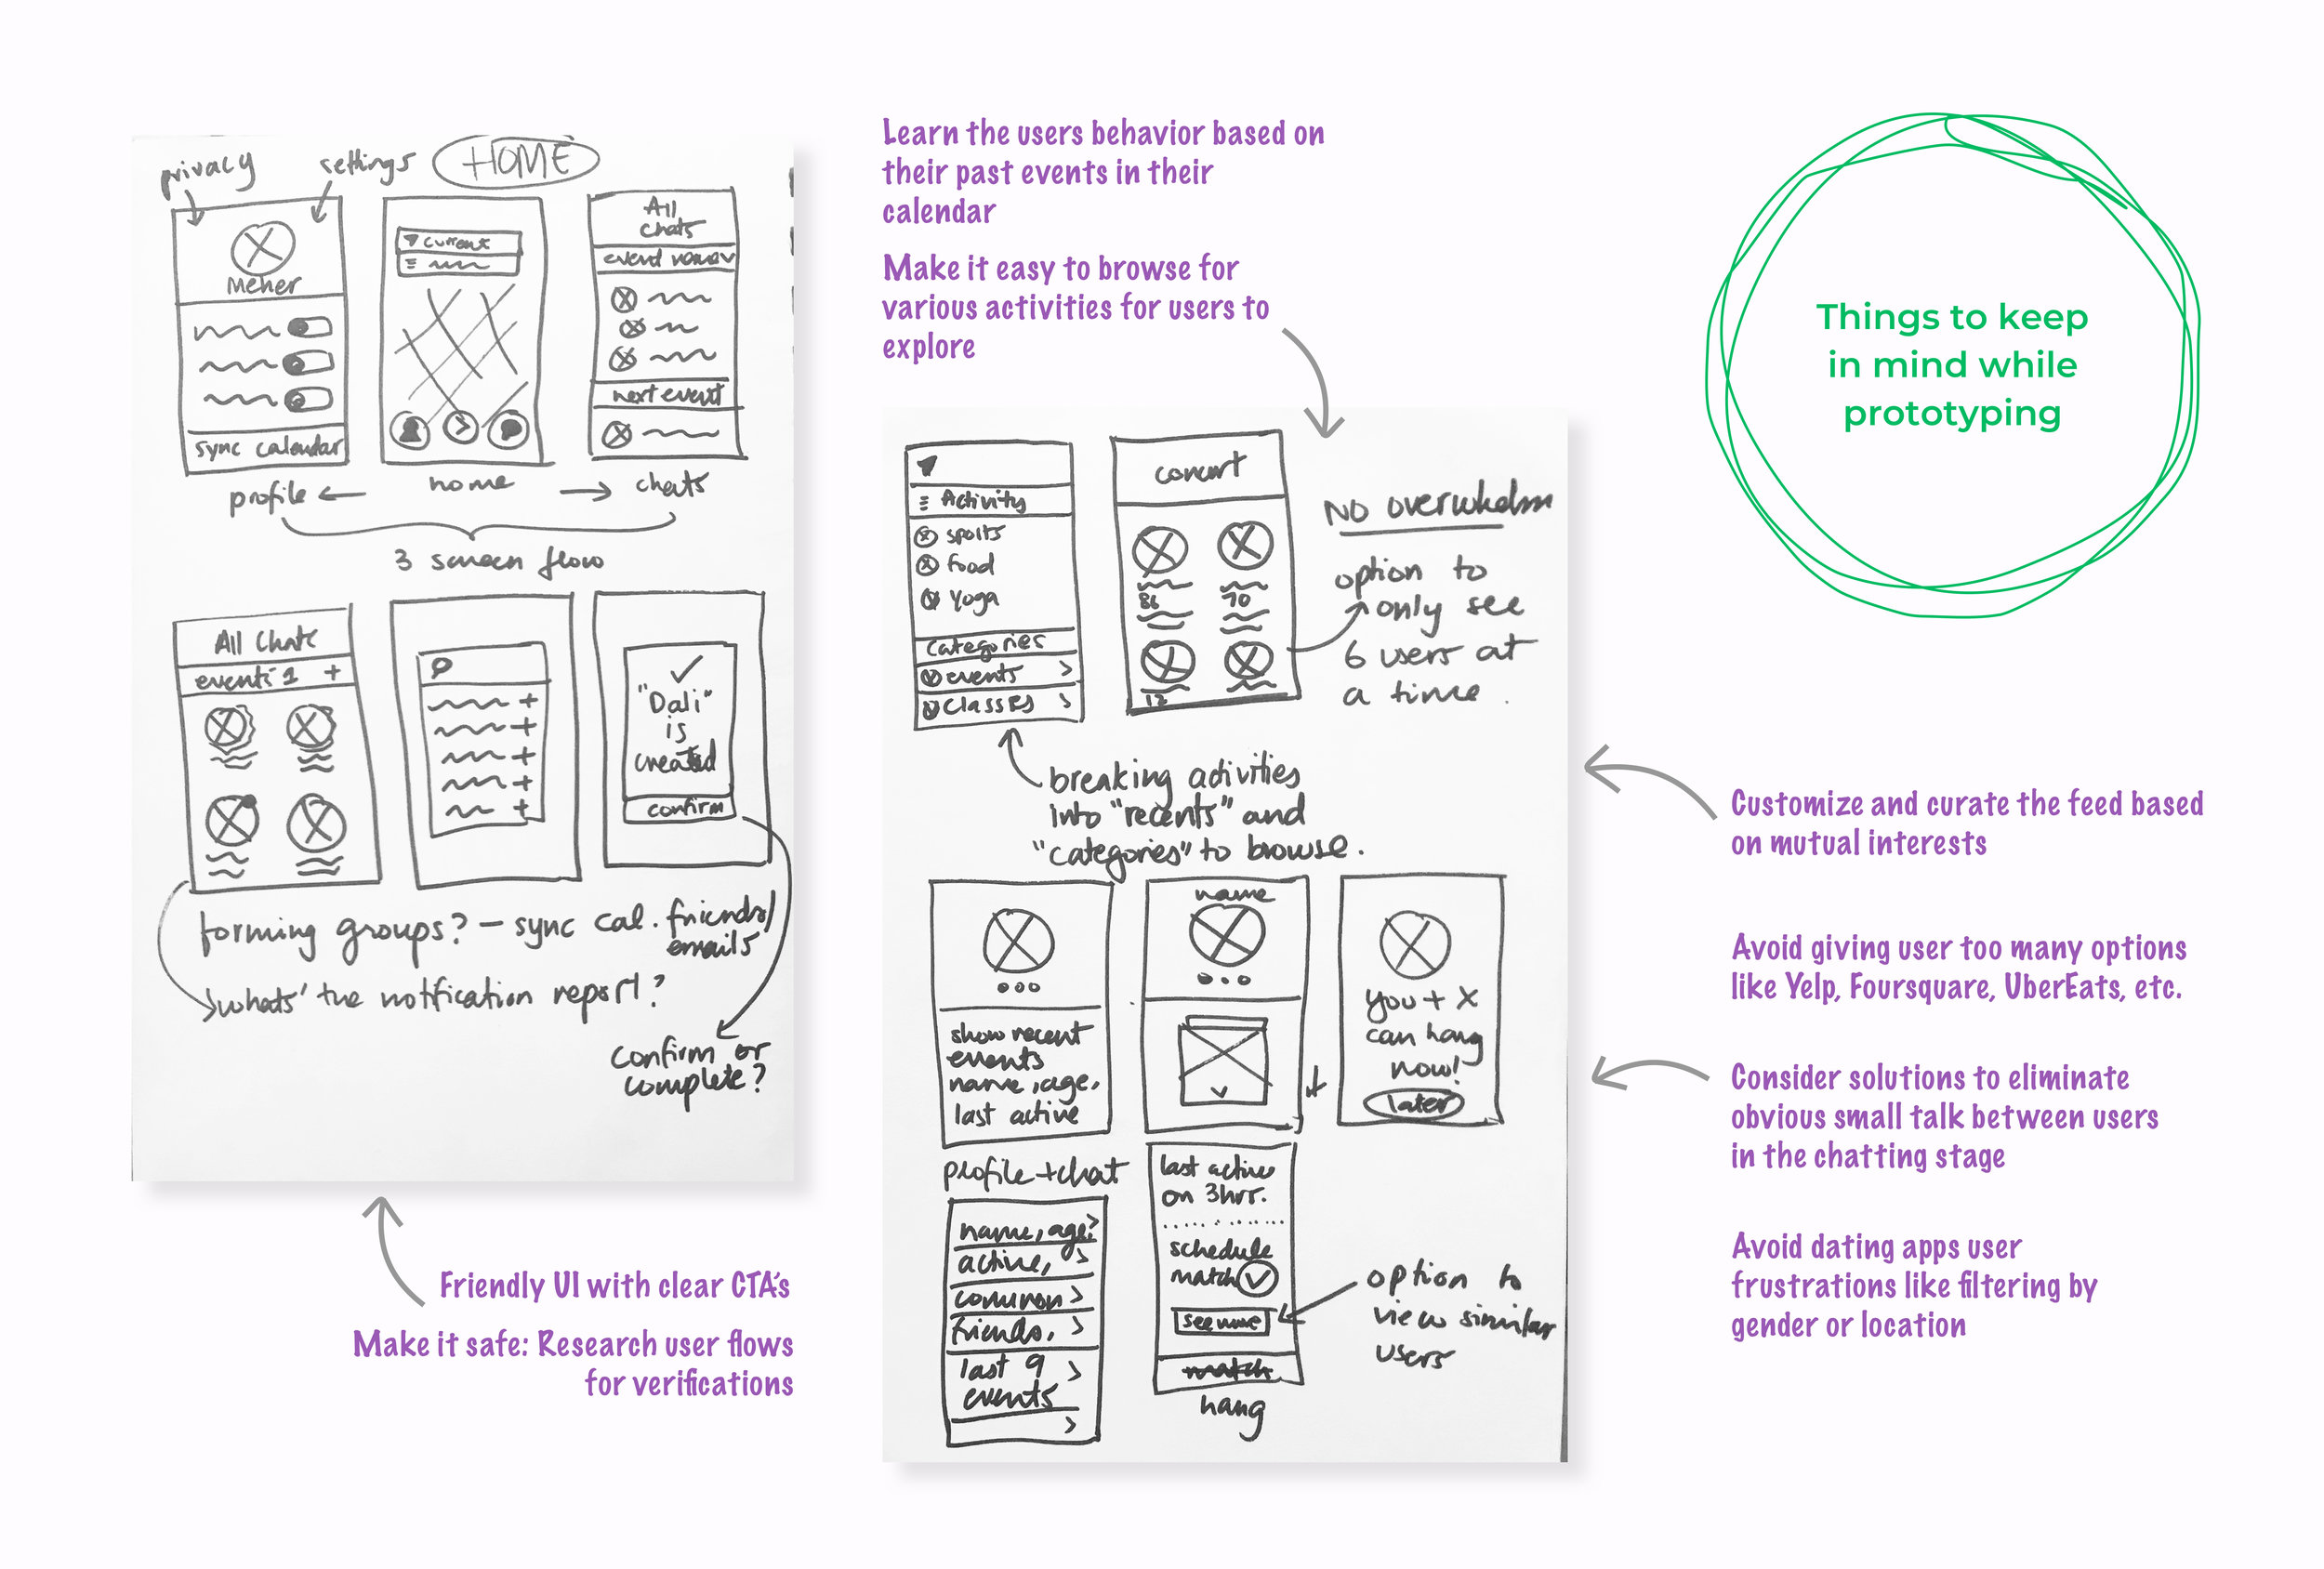 privacy
settings
HOME
Meher
sync calendar
profile
current
home
All
chats
event name
next event
chats
3 screen flow
All Chats
event 1 +
+
+
+
+
+
✓
"Dali"
is
created
confirm
forming groups? — sync cal. friends/
emails
whats' the notification report?
confirm or
complete?
Friendly UI with clear CTA's
Make it safe: Research user flows
for verifications
Learn the users behavior based on
their past events in their
calendar
Make it easy to browse for
various activities for users to
explore
Activity
sports
food
Yoga
categories
events >
classes >
concert
86
70
12
NO overwhelm
option to
only see
6 users at
a time.
breaking activities
into "recents" and
"categories" to browse.
show recent
events
name, age,
last active
profile + chat
name
you + X
can hang
now!
later
name, age >
active, >
common >
friends, >
last 9 >
events
>
last active
on 3hrr.
schedule
match ✓
see more
match
hang
option to
view similar
users
Things to keep
in mind while
prototyping
Customize and curate the feed based
on mutual interests
Avoid giving user too many options
like Yelp, Foursquare, UberEats, etc.
Consider solutions to eliminate
obvious small talk between users
in the chatting stage
Avoid dating apps user
frustrations like filtering by
gender or location